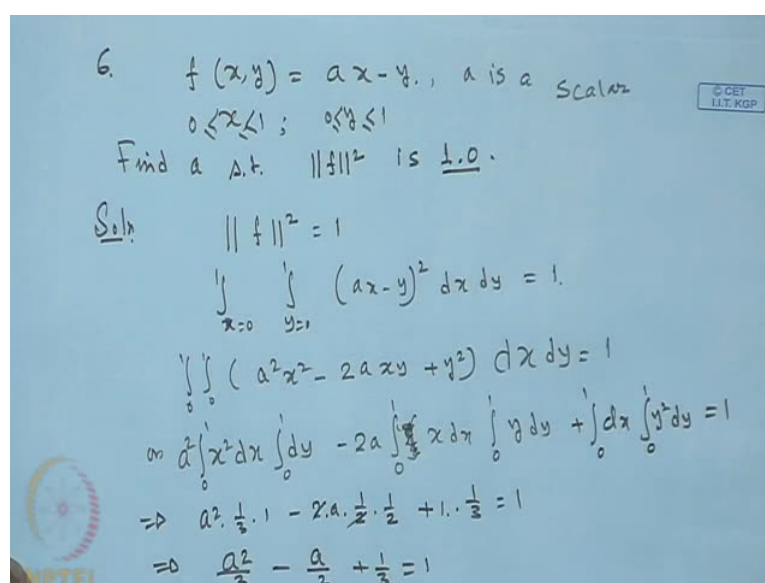 6. f (x,y) = ax - y. , a is a scalar
© CET
I.I.T. KGP
0 ≤ x ≤ 1 ; 0 ≤ y ≤ 1
Find a s.t. ||f||² is 1.0.
Soln ||f||² = 1
∫₀¹ₓ₌₀ ∫¹ᵧ₌₀ (ax-y)² dx dy = 1.
∫₀¹ ∫₀¹ ( a²x² - 2axy + y² ) dx dy = 1
or a² ∫₀¹ x² dx ∫₀¹ dy - 2a ∫₀¹ x dx ∫₀¹ y dy + ∫₀¹ dx ∫₀¹ y² dy = 1
⇒ a². 1/3 . 1 - 2.a. 1/2 . 1/2 + 1. . 1/3 = 1
⇒ a²/3 - a/2 + 1/3 = 1
NPTEL